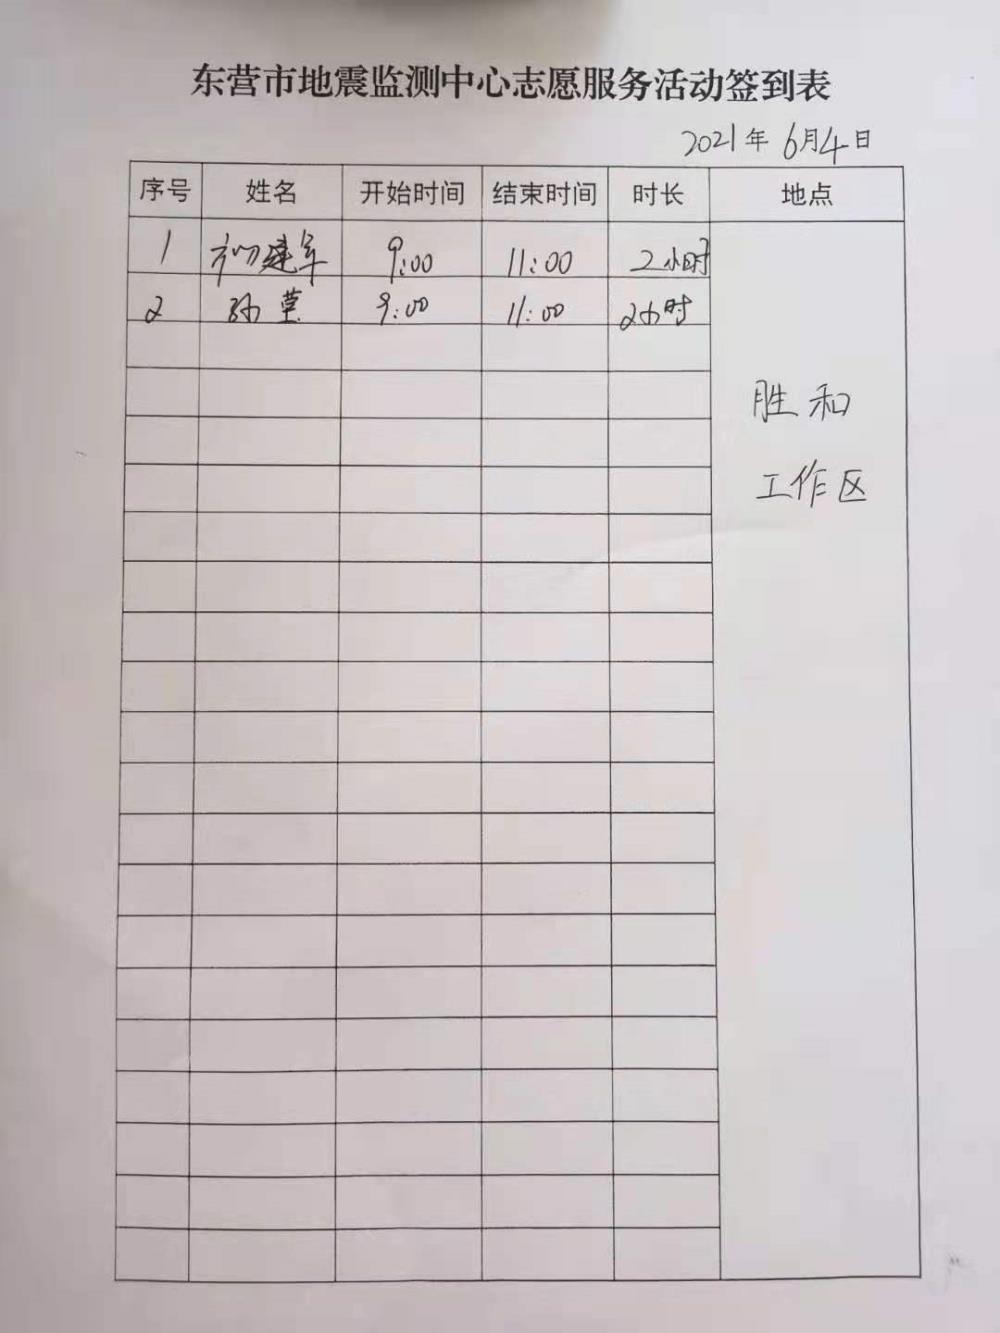 东营市地震监测中心志愿服务活动签到表
2021年6月4日
序号 姓名 开始时间 结束时间 时长 地点
1 初建军 9:00 11:00 2小时
2 孙莹 9:00 11:00 2小时
胜和
工作区